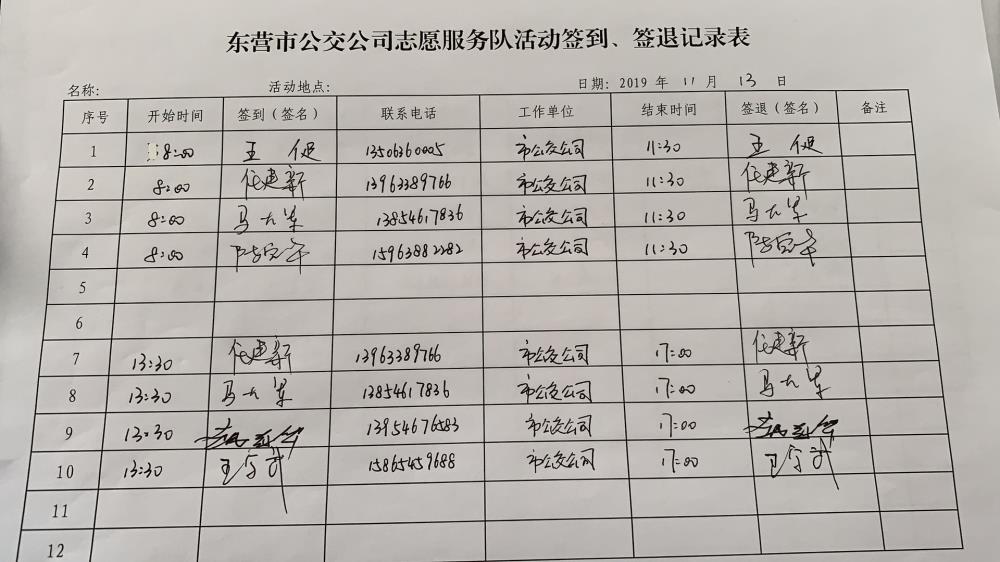 东营市公交公司志愿服务队活动签到、签退记录表
名称: 活动地点: 日期: 2019 年 11 月 13 日
序号 开始时间 签到（签名） 联系电话 工作单位 结束时间 签退（签名） 备注
1 8:00 王 13506360005 市公交公司 11:30 王
2 8:00 任建新 13963389766 市公交公司 11:30 任建新
3 8:00 马大军 13854617836 市公交公司 11:30 马大军
4 8:00 15963882282 市公交公司 11:30
5
6
7 13:30 任建新 13963389766 市公交公司 17:00 任建新
8 13:30 马大军 13854617836 市公交公司 17:00 马大军
9 13:30 13954676583 市公交公司 17:00
10 13:30 王 15865459688 市公交公司 17:00 王
11
12